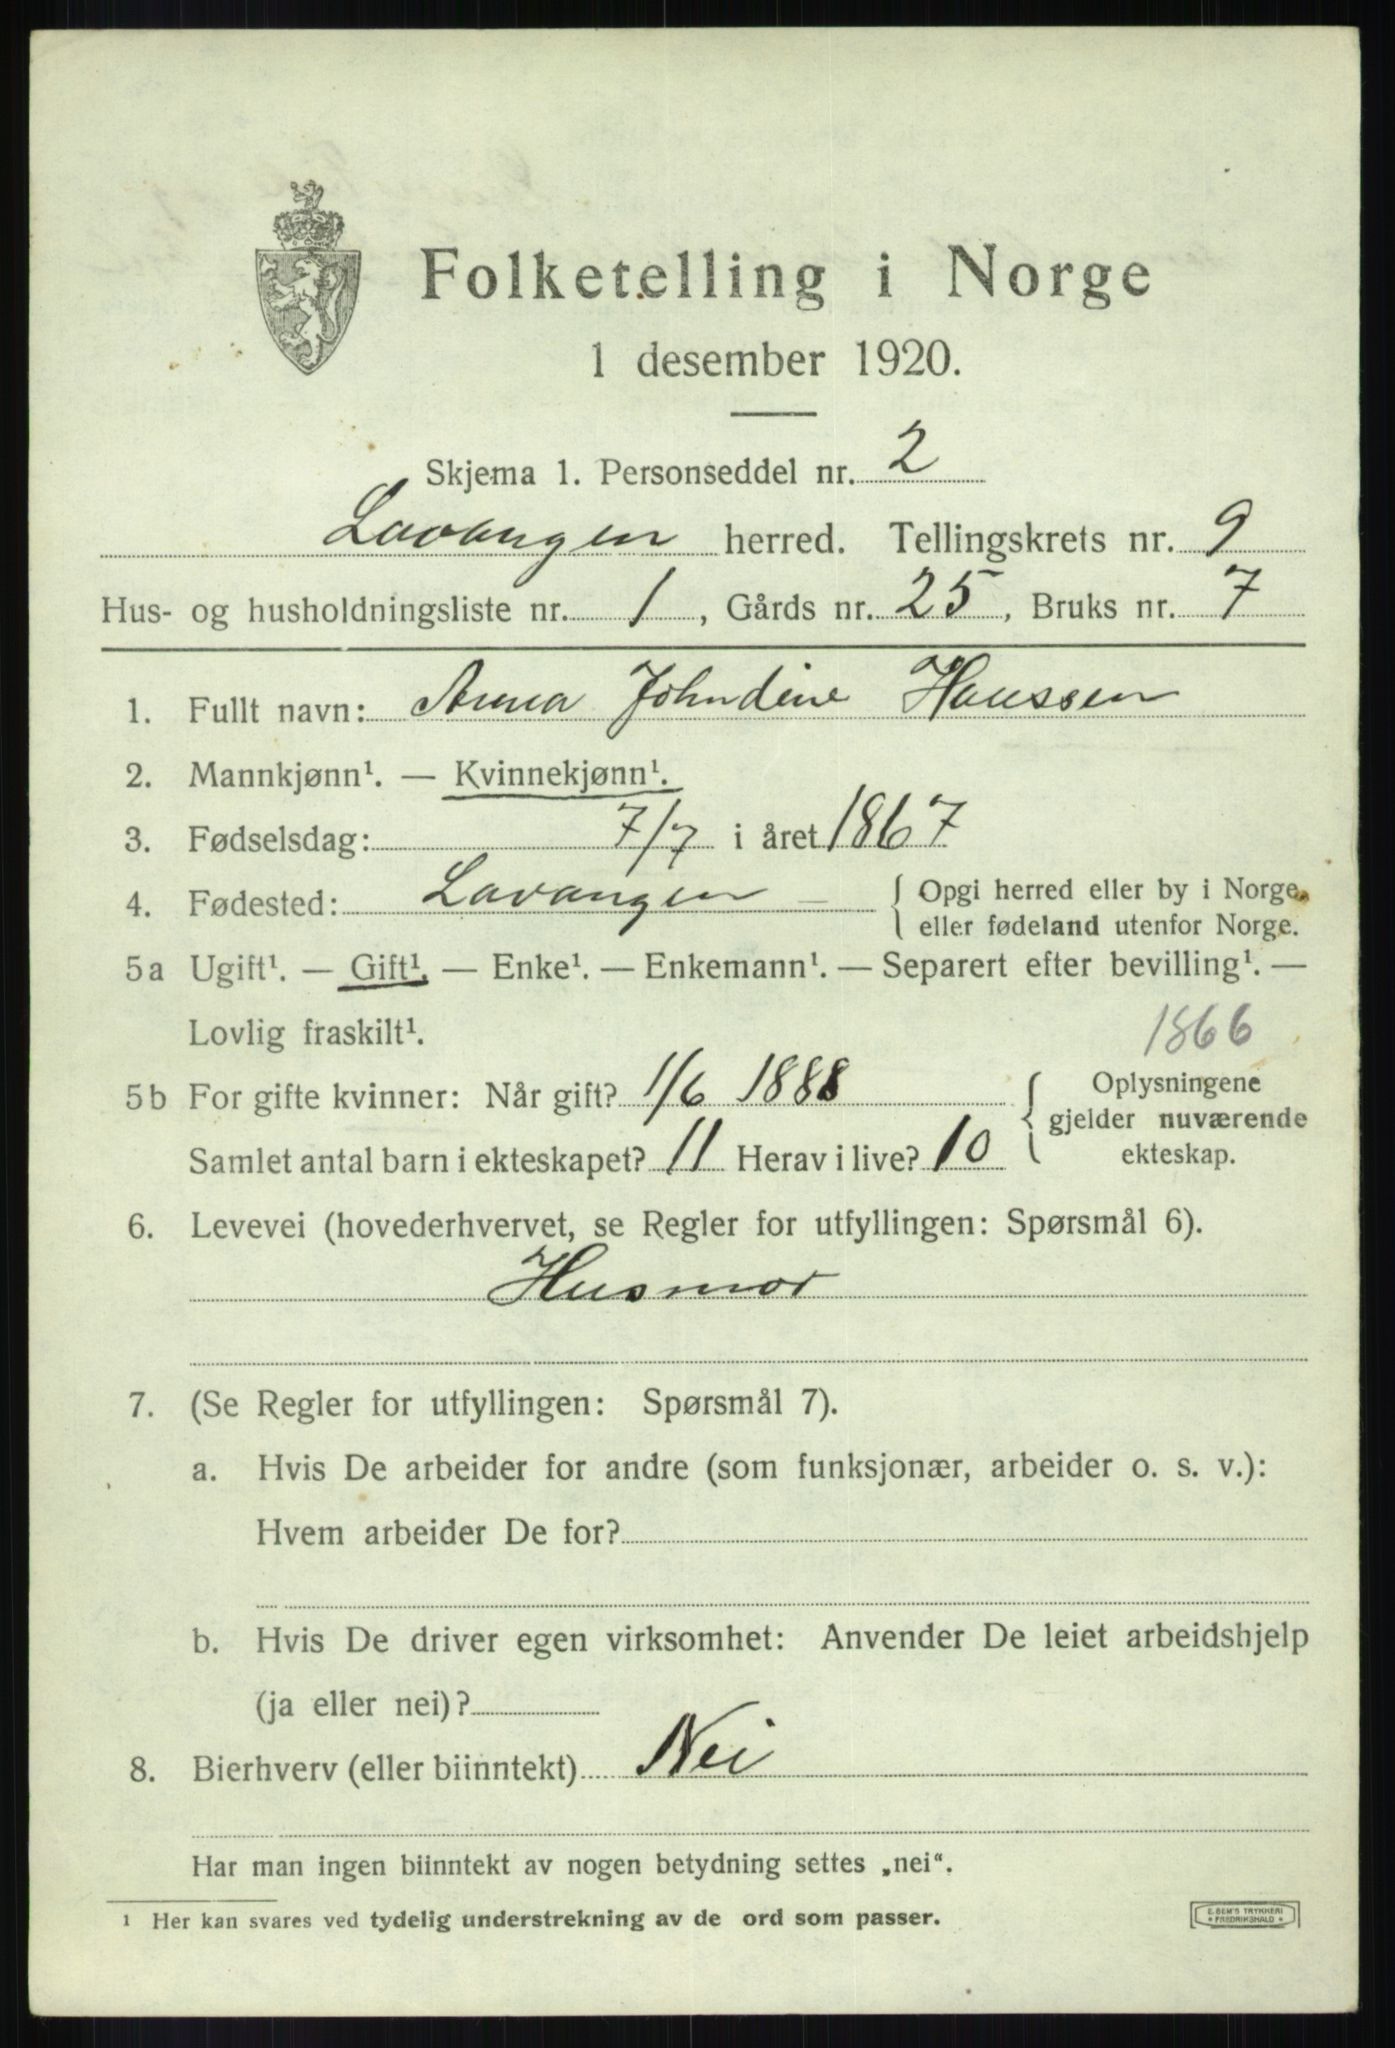 Folketelling i Norge
1 desember 1920.
Skjema 1. Personseddel nr. 2
Lavangen herred. Tellingskrets nr. 9
Hus- og husholdningsliste nr. 1, Gårds nr. 25, Bruks nr. 7
1. Fullt navn: Anna Johndine Hanssen
2. Mannkjønn¹. — Kvinnekjønn¹.
3. Fødselsdag: 7/7 i året 1867
4. Fødested: Lavangen — { Opgi herred eller by i Norge,
eller fødeland utenfor Norge.
5a Ugift¹. — Gift¹. — Enke¹. — Enkemann¹. — Separert efter bevilling¹. —
Lovlig fraskilt¹. 1866
5b For gifte kvinner: Når gift? 1/6 1888 { Oplysningene
gjelder nuværende
Samlet antal barn i ekteskapet? 11 Herav i live? 10 ekteskap.
6. Levevei (hovederhvervet, se Regler for utfyllingen: Spørsmål 6).
Husmor
7. (Se Regler for utfyllingen: Spørsmål 7).
a. Hvis De arbeider for andre (som funksjonær, arbeider o. s. v.):
Hvem arbeider De for?
b. Hvis De driver egen virksomhet: Anvender De leiet arbeidshjelp
(ja eller nei)?
8. Bierhverv (eller biinntekt) Nei
Har man ingen biinntekt av nogen betydning settes „nei“.
¹ Her kan svares ved tydelig understrekning av de ord som passer.
E. SEM'S TRYKKERI
* FREDRIKSHALD *